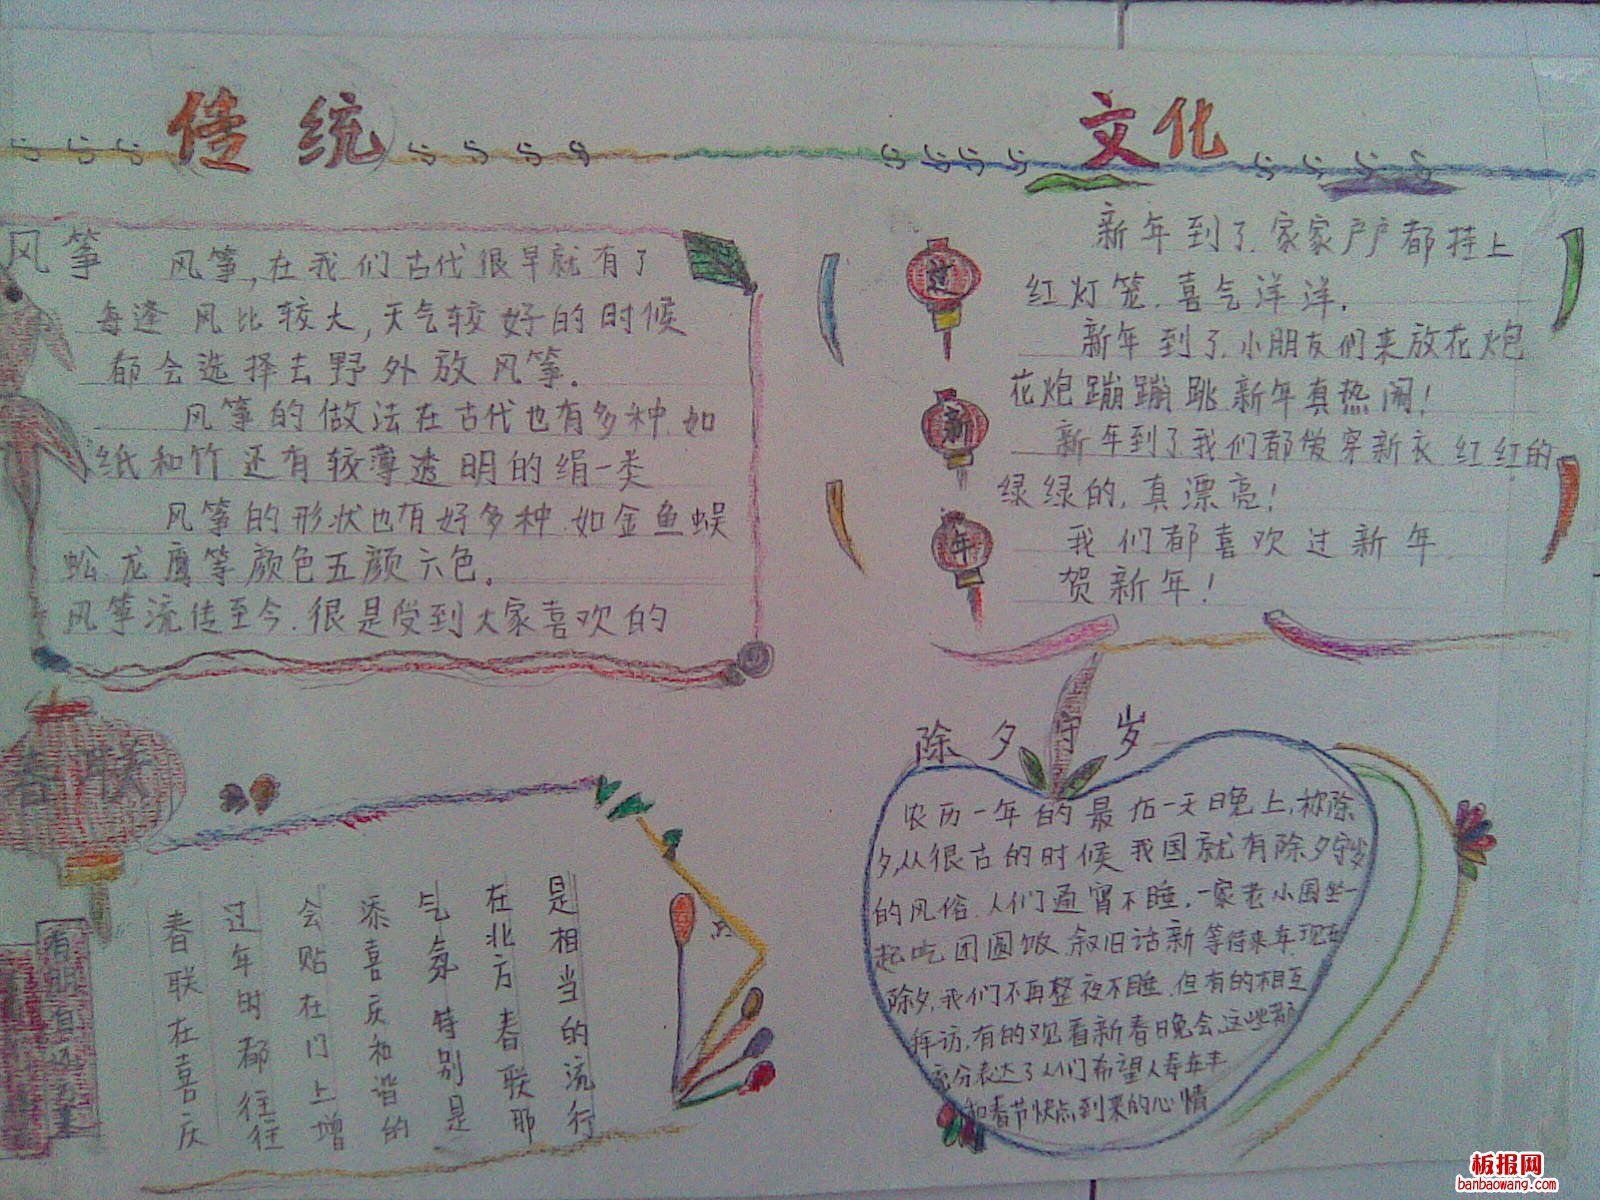 传统
文化
风筝
风筝,在我们古代很早就有了
每逢风比较大,天气较好的时候
都会选择去野外放风筝.
风筝的做法在古代也有多种.如
纸和竹还有较薄透明的绢一类
风筝的形状也有好多种.如金鱼蜈
蚣.龙鹰等颜色五颜六色.
风筝流传至今.很是受到大家喜欢的
过
新
年
新年到了.家家户户都挂上
红灯笼.喜气洋洋.
新年到了.小朋友们来放花炮
花炮蹦蹦跳新年真热闹!
新年到了我们都爱穿新衣红红的
绿绿的.真漂亮!
我们都喜欢过新年
贺新年!
春联
春联在喜庆
过年时都往往
会贴在门上增
添喜庆和谐的
气氛特别是
在北方春联那
是相当的流行
除夕守岁
农历一年的最后一天晚上,称除
夕,从很古的时候我国就有除夕守岁
的风俗.人们通宵不睡.一家老小围坐一
起吃团圆饭.叙旧话新等待来年.现在
除夕,我们不再整夜不睡.但有的相互
拜访,有的观看新春日晚会.这些都
充分表达了人们希望人寿年丰
和春节快点到来的心情
板报网
banbaowang.com